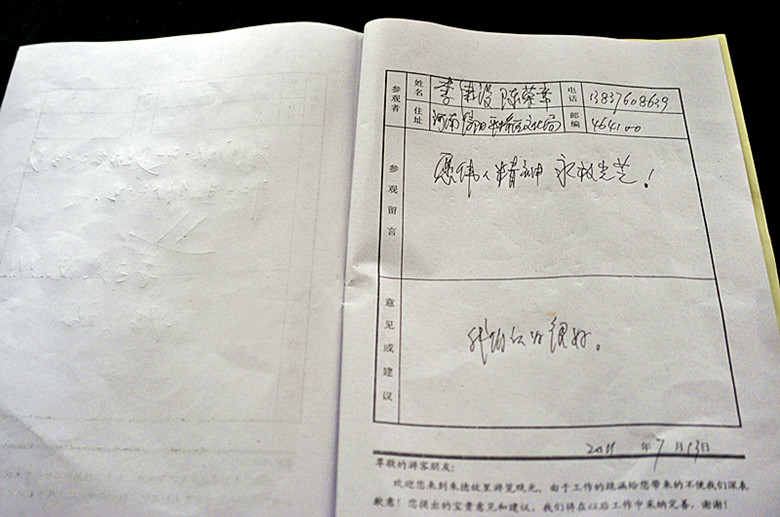 参观者 姓名 李 陈荣华 电话 13837608639
住址 河南信阳平桥区文化局 邮编 464100
参观留言
愿伟人精神永放光芒!
意见或建议
我的认为很好。
2011年7月13日
尊敬的游客朋友:
欢迎您来到朱德故里游览观光，由于工作的疏漏给您带来的不便我们深表
歉意!您提出的宝贵意见和建议，我们将在以后工作中采纳完善，谢谢!